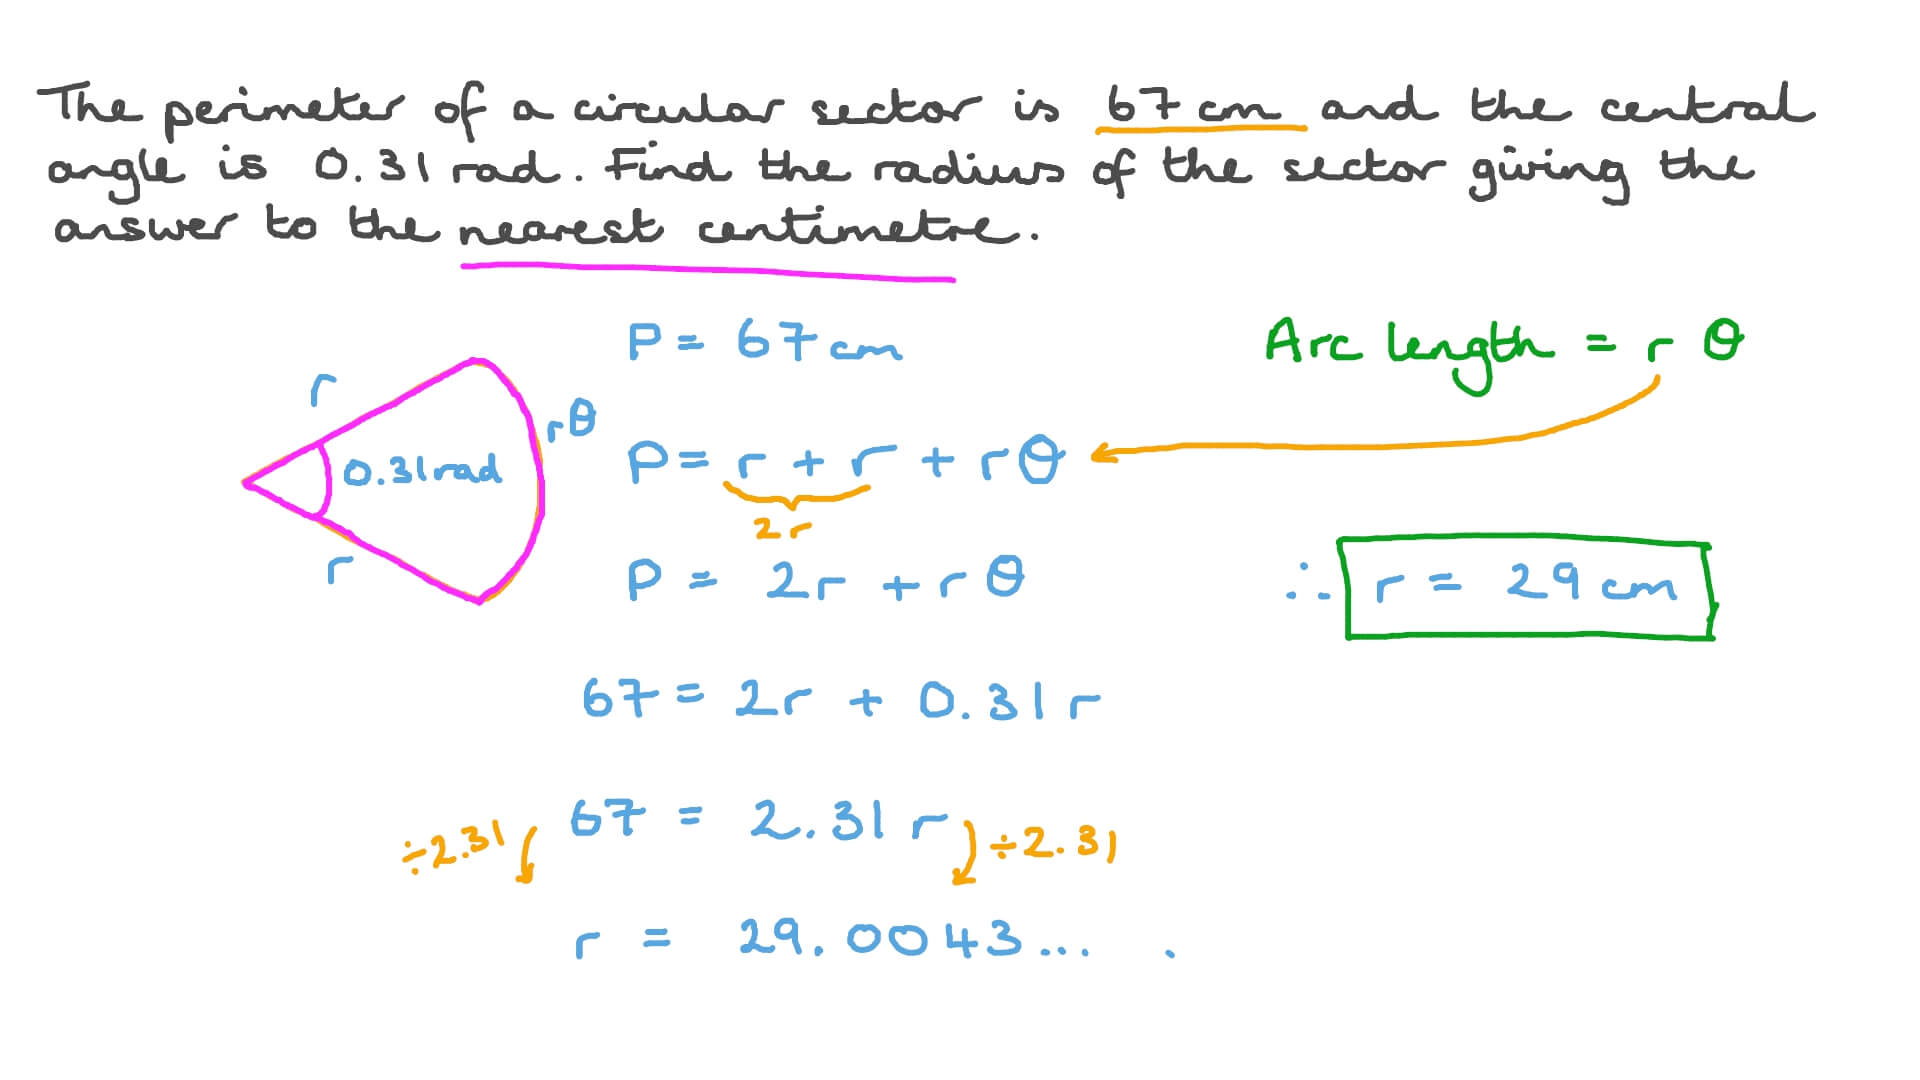 The perimeter of a circular sector is 67 cm and the central
angle is 0.31 rad. Find the radius of the sector giving the
answer to the nearest centimetre.
P = 67 cm
Arc length = r θ
r
rθ
0.31 rad
r
P = r + r + rθ
2r
P = 2r + rθ
∴ r = 29 cm
67 = 2r + 0.31r
÷2.31
67 = 2.31r
÷2.31
r = 29.0043... .